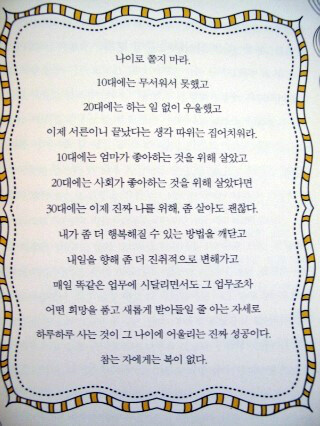 나이로 쫄지 마라.
10대에는 무서워서 못했고
20대에는 하는 일 없이 우울했고
이제 서른이니 끝났다는 생각 따위는 집어치워라.
10대에는 엄마가 좋아하는 것을 위해 살았고
20대에는 사회가 좋아하는 것을 위해 살았다면
30대에는 이제 진짜 나를 위해, 좀 살아도 괜찮다.
내가 좀 더 행복해질 수 있는 방법을 깨닫고
내일을 향해 좀 더 진취적으로 변해가고
매일 똑같은 업무에 시달리면서도 그 업무조차
어떤 희망을 품고 새롭게 받아들일 줄 아는 자세로
하루하루 사는 것이 그 나이에 어울리는 진짜 성공이다.
참는 자에게는 복이 없다.